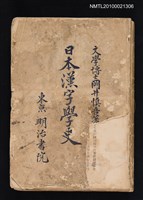 NMTL20100021306
文學博士岡井慎吾著
日本漢字學史
東京 明治書院